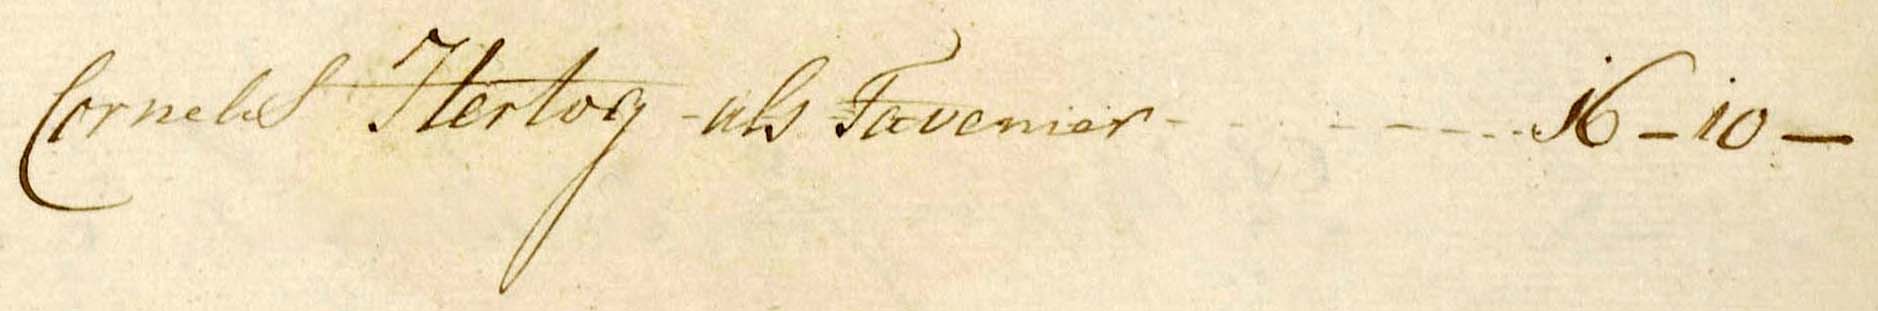 Cornelis Hertog als Tavenier - - - - - - - - 16 - 10 -